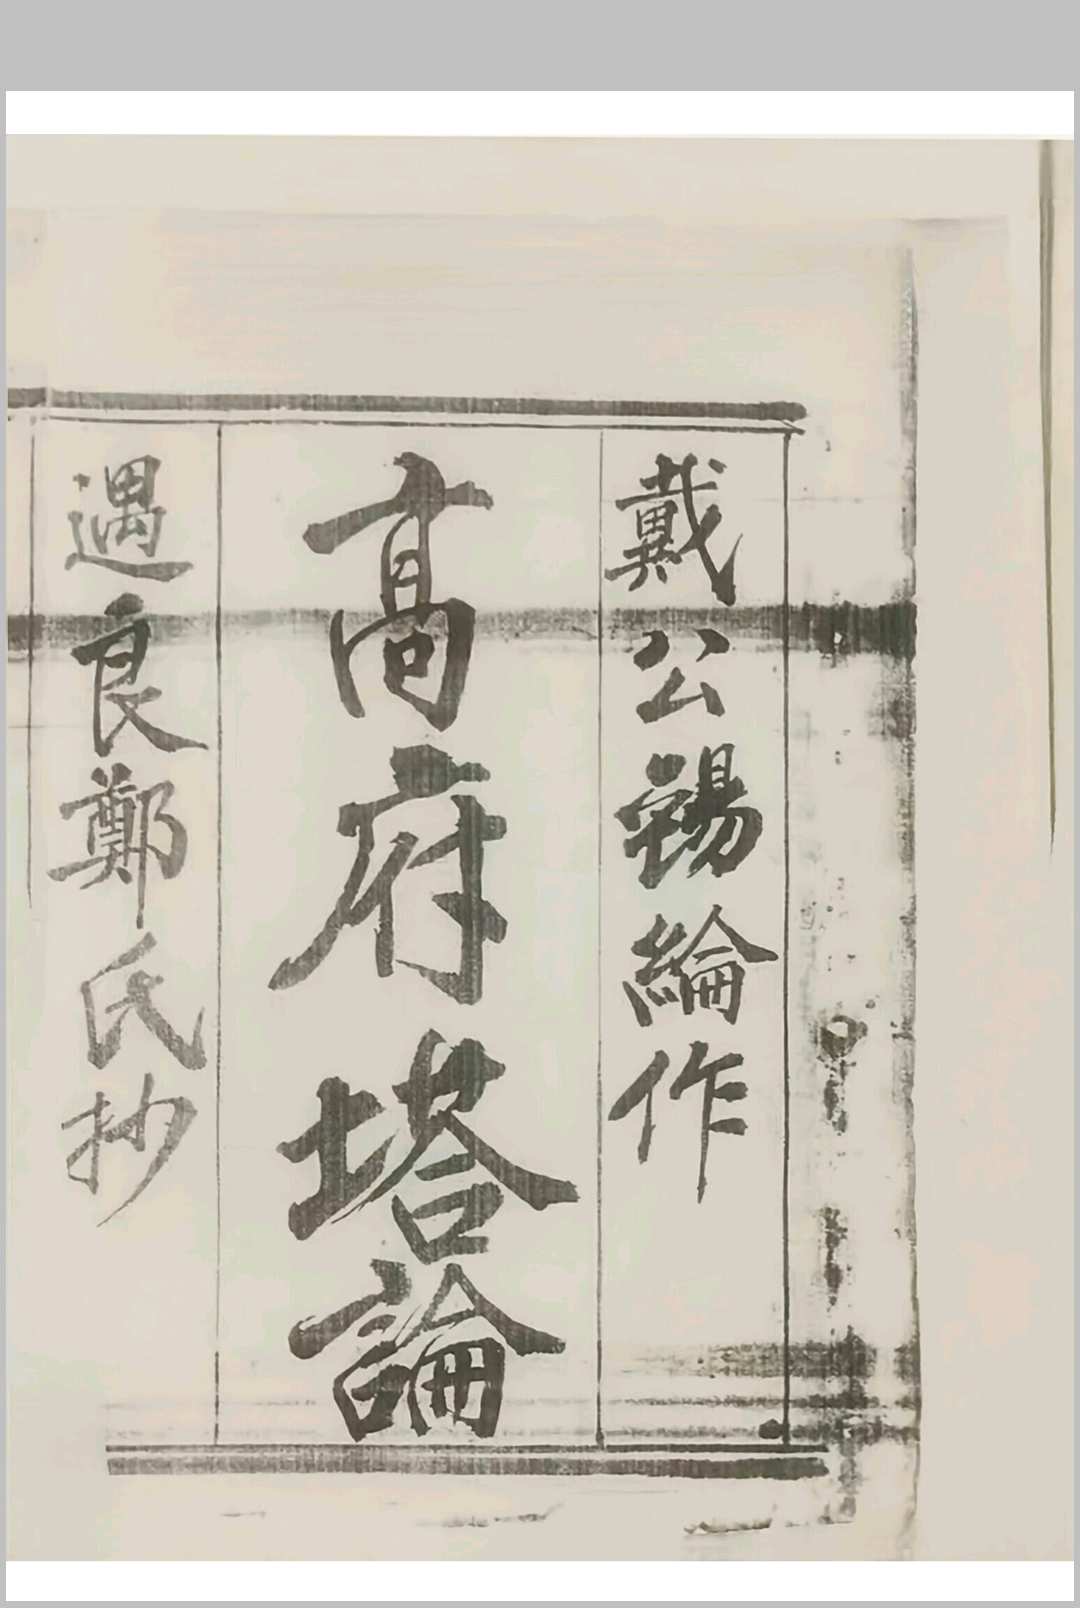 戴公錫綸作
高府塔論
遇良鄭氏抄